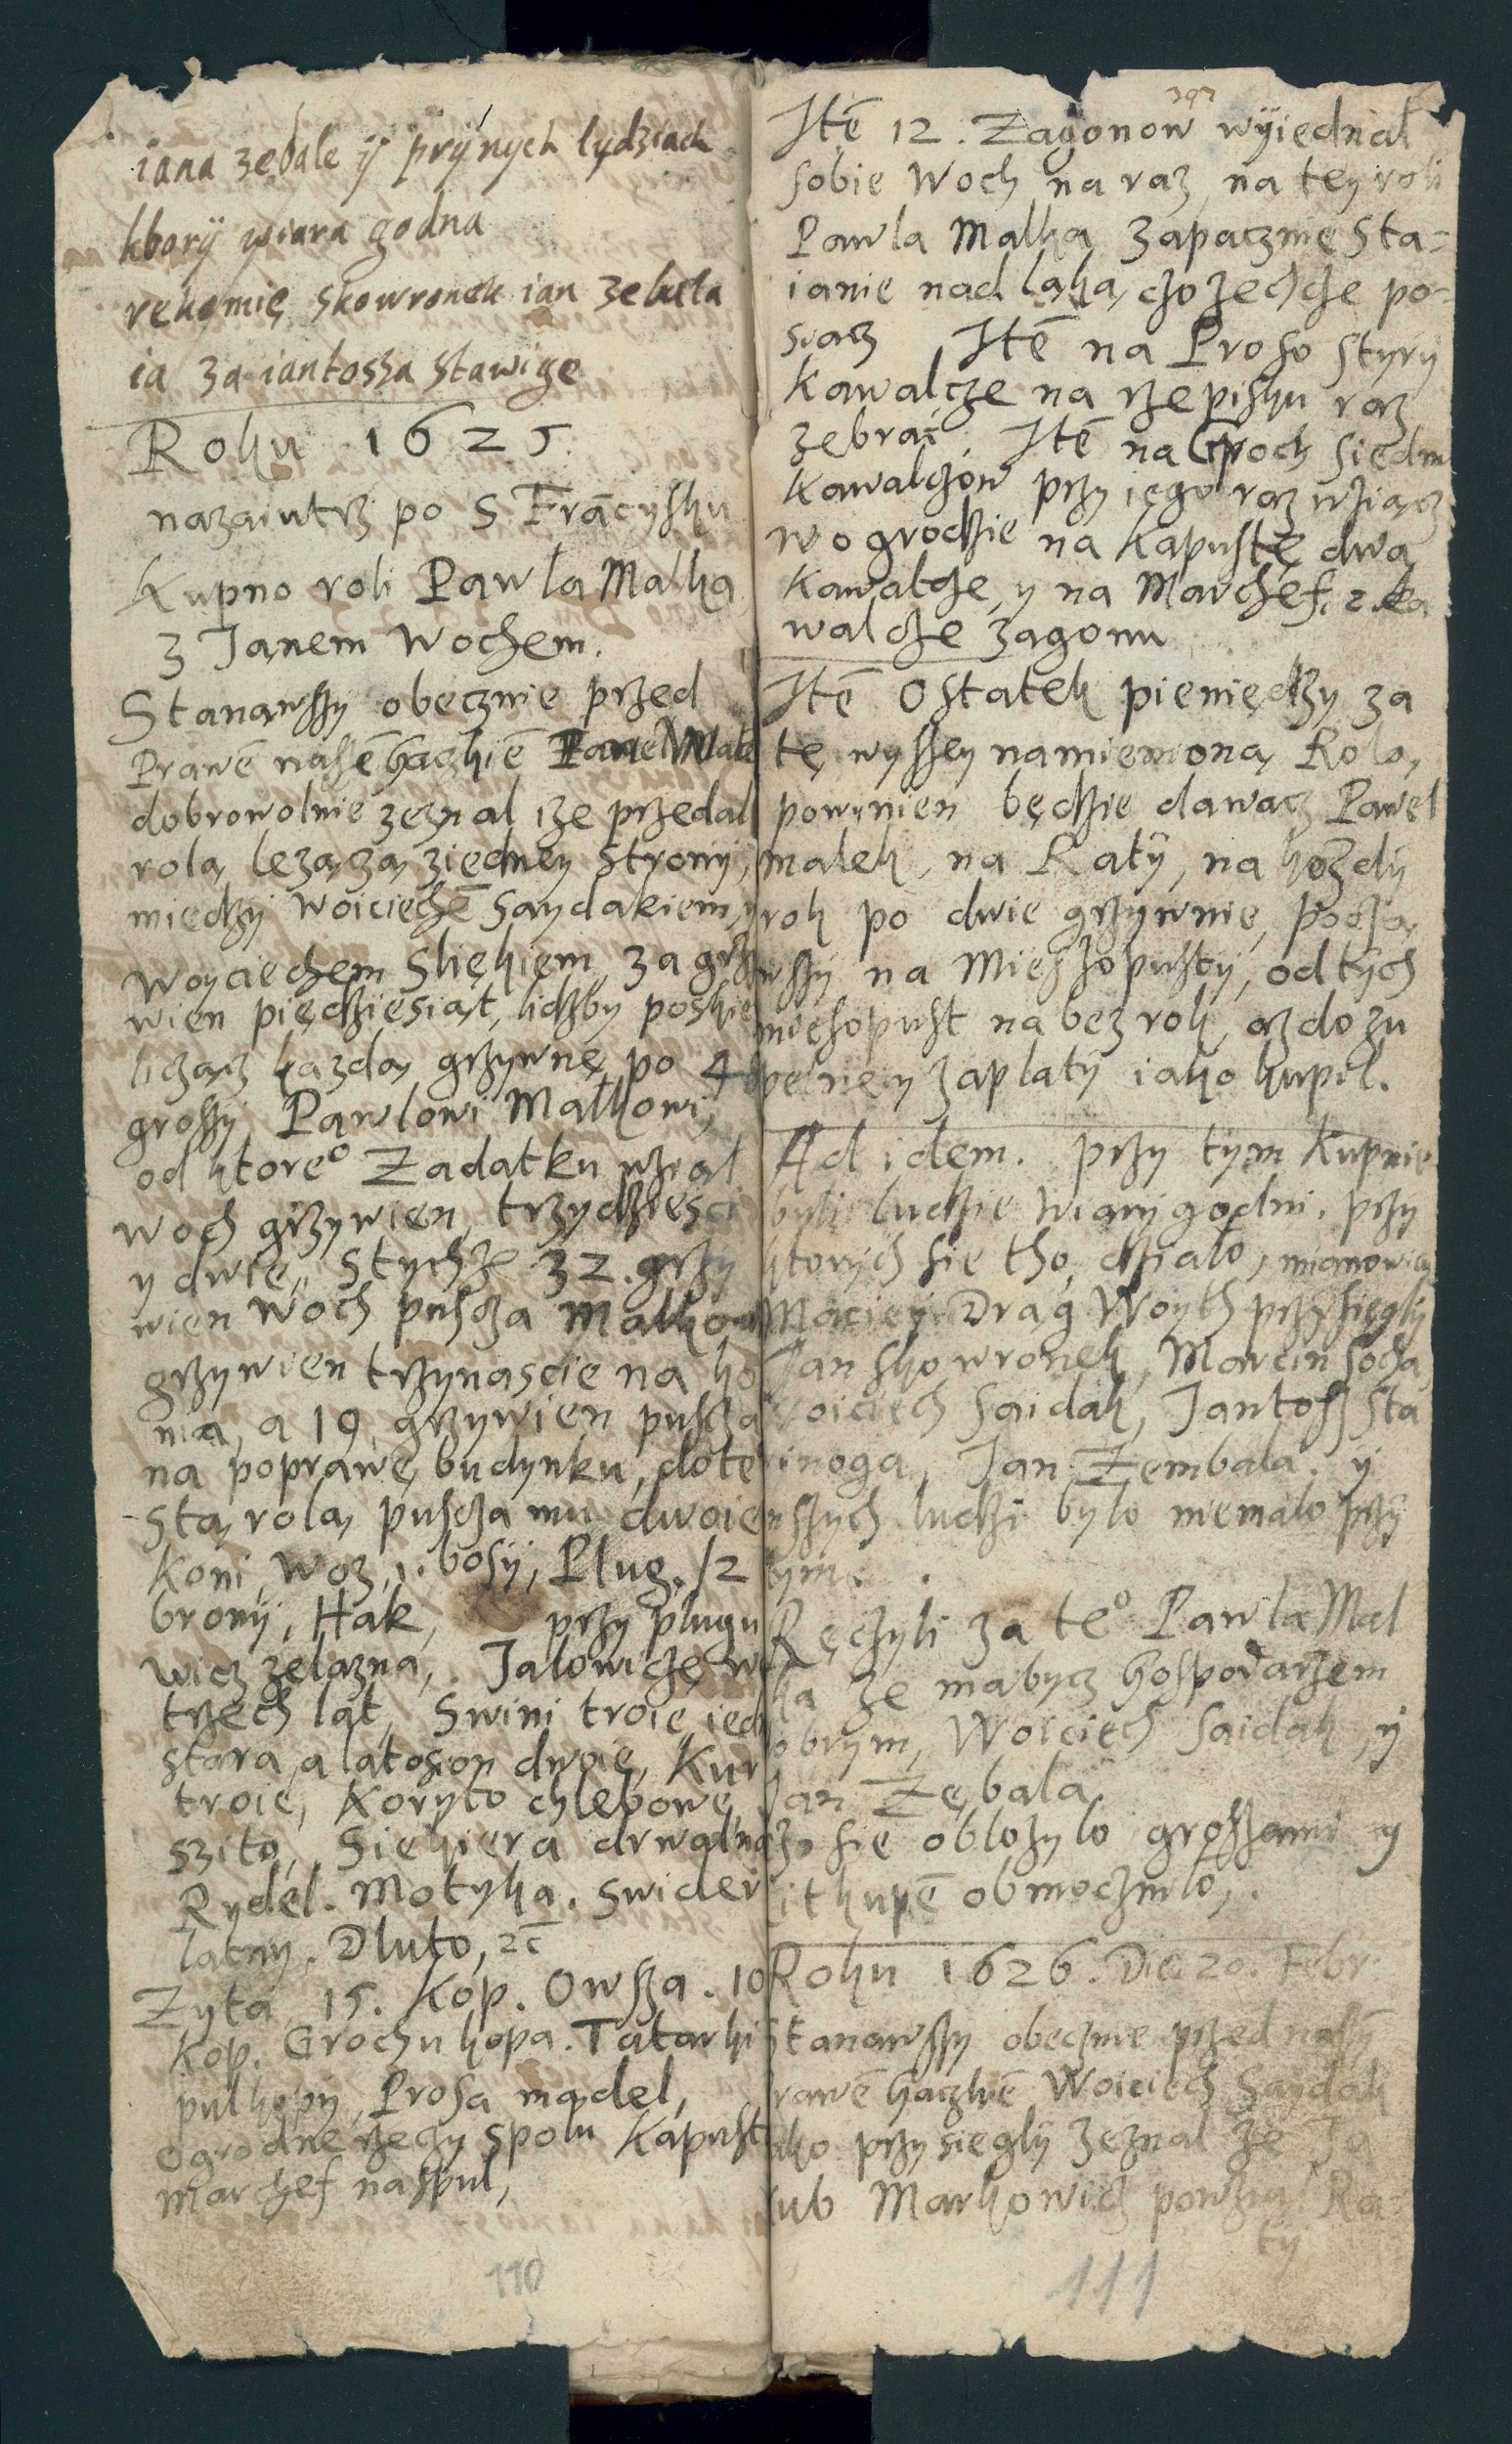 iana zębale ÿ prÿnych lydziach
kborÿ wiara godna
rekomię skowronek ian zebula
ia za iantossa stawige
Roku 1625
nazaiutrz po S Frācyſku
Kupno roli Pawla Malka
z Janem Wochem.
Stanawſſy obecznie przed
Prawē naſſē Gaczkiē Pawel Malek
dobrowolnie zeznal ize przedal
rolą lezączą ziedney strony,
miedzy woiciechē Saydakiem, y
woyciechem Sliękiem, za grzy
wien piędzieſiąt, liczby poskie
licząz kazdą grzywnę po 48
groſſy Pawlowi Malkowi,
od ktoreº Zadatku wzial
woch grzywien, trzydzieſci
y dwie, stychze 32. grzy
wien woch puſcza Malkowi
grzywien trzynascie na ko
nia, a 19 grzywien puſcza
na poprawę budynku, dote
stą rolą puſcza mu dwoie
Koni, woz, 1. boſy, Plug. /2
brony, Hak, przy plugu
wicz zelazna, Jalowicze w
trzech lat, Swini troie, ied
stara, a latosion dwoie, Kur
troie, Koryto chlebowe,
szito, Siekiera drwalna
Rydel. Motyka. Swider
latny. Dluto, ꝛc
Zyta 15. Kop. Owſza. 10
Kop. Grochu kopa. Tatarki
pulkopy, Proſa mądel,
ogrodne rzeczy spolu Kapuſt
marchef naſpul,
110
397
Itē 12. Zagonow wÿiednal
ſobie Woch na raz na tey roli
Pawla Malka zapaczmę Sta=
ianie nad laką, czo zechcze po=
siacz Itē na Proſo styry
Kawalcze na rzepiſku raz
zebrać. Itē na Groch siedm
Kawalczow przy iego raz wziącz
w ogrodzie na Kapuſtę dwa
Kawalcze, y na Marchef. 2. ka
walcze zagonu
Itē Oſtatek pieniędzy za
tę wyſſey namieniona, Rolą,
powinien będzie dawacz Pawel
malek, na Ratÿ, na kozdÿ
rok po dwie grzywnie, pocza,
wſſy na Mieſzopuſty, od tÿch
mieſopuſt na bez rok, az do zu
pelney zaplatÿ iako kupil.
Ad idem. przy tym Kupnie
byli ludzie wiary godni. przy
ktorych ſie tho dzialo, mianowicie
Maciey Drag Woyth przyſięgly
Jan Skowronek, Marcin ſocha,
Woiciech Saidak, Jantoſſ Sta
rinoga, Jan Zembala. y
inſſych ludzi bylo niemalo przy
tym.
Ręczyli za teº Pawla Mal
ka ze mabycz Goſpodarzem
dobrym, Woiciech Saidak, y
Jan Zębala
czo ſie oblozylo groſſami y
litkupē obmoczmlo,.
Roku 1626. Die 20. Febr.
Stanawſſy obecznie przed naſſÿ
Prawē Gaczkiē Woiciech Saydak
iako przysięglÿ zeznal ze Ja
kub Markowicz powzial Ra=
tÿ
111